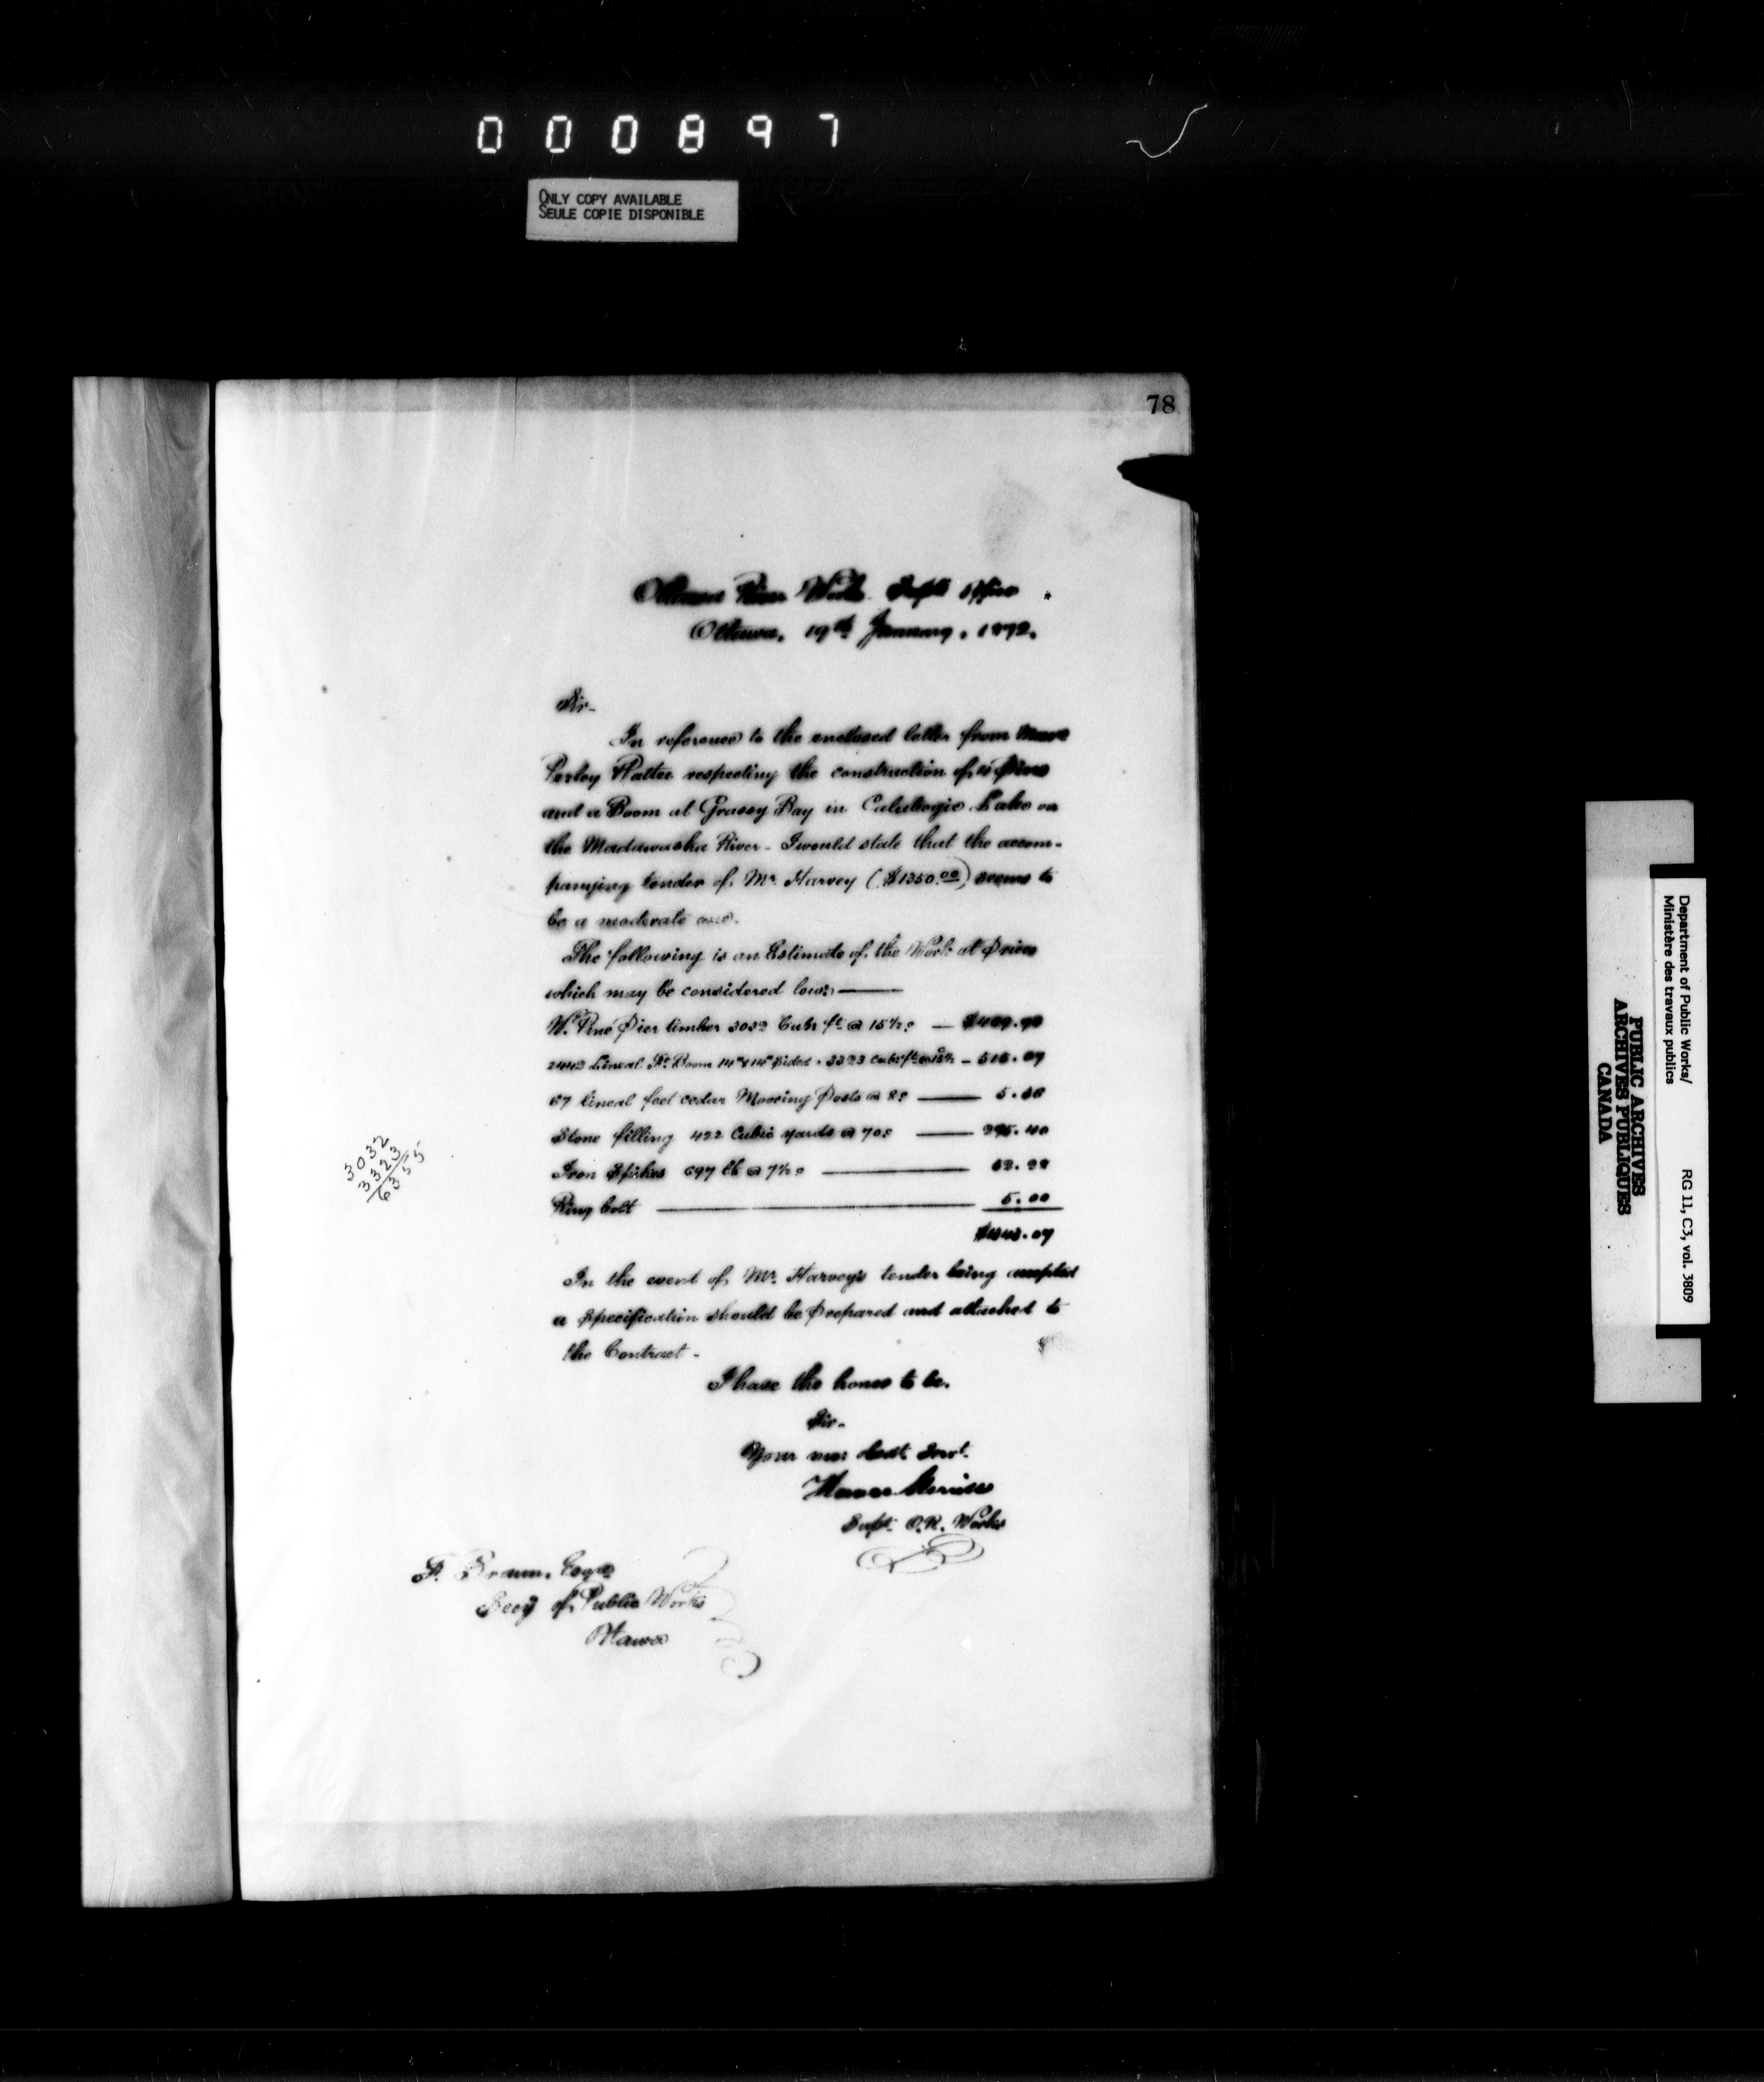 000897
ONLY COPY AVAILABLE
SEULE COPIE DISPONIBLE
78
Ottawa River Works Supts Office
Ottawa, 19th January, 1872.
Sir-
In reference to the enclosed letter from Messrs
Perley Pattee respecting the construction of piers
and a Boom at Grassy Bay in Calabogie Lake on
the Madawaska River - I would state that the accom-
panying tender of Mr. Harvey ($1350.00) seems to
be a moderate one.
The following is an Estimate of the Work at Prices
which may be considered low:-
Wt. Pine Pier timber 3032 Cubc ft @ 15½c — $469.
2442 Lineal Ft. Boom 14"x14" Sided = 3323 cubc ft @ 15½ - 515.07
67 lineal feet cedar Mooring Posts @ 8c — 5.36
Stone filling 422 Cubic yards @ 70c — 295.40
Iron Spikes 697 lb @ 7½c — 52.28
Ring bolt — 5.00
.07
3032
3323
6355
In the event of Mr. Harvey's tender being accepted
a Specification should be Prepared and attached to
the Contract -
I have the honor to be.
Sir-
Your mo: obdt Servt.
Horace Merrill
Supt. O.R. Works
F. Braun, Esqre
Secy of Public Works
Ottawa
Department of Public Works/
Ministère des travaux publics
RG 11, C3, vol. 3809
PUBLIC ARCHIVES
ARCHIVES PUBLIQUES
CANADA